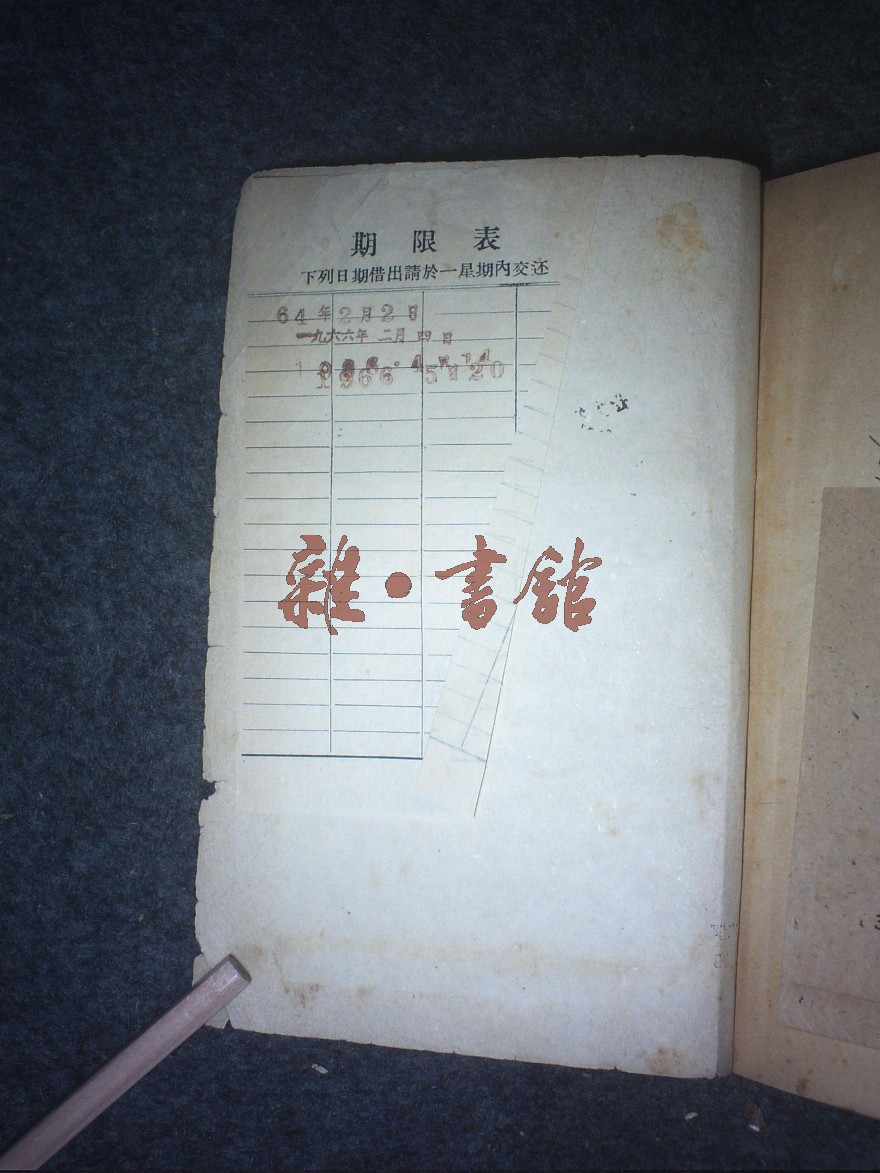 期限表
下列日期借出請於一星期內交还
64年2月2日
一九六六年 二月 四日
1966 5月20
雜·書館